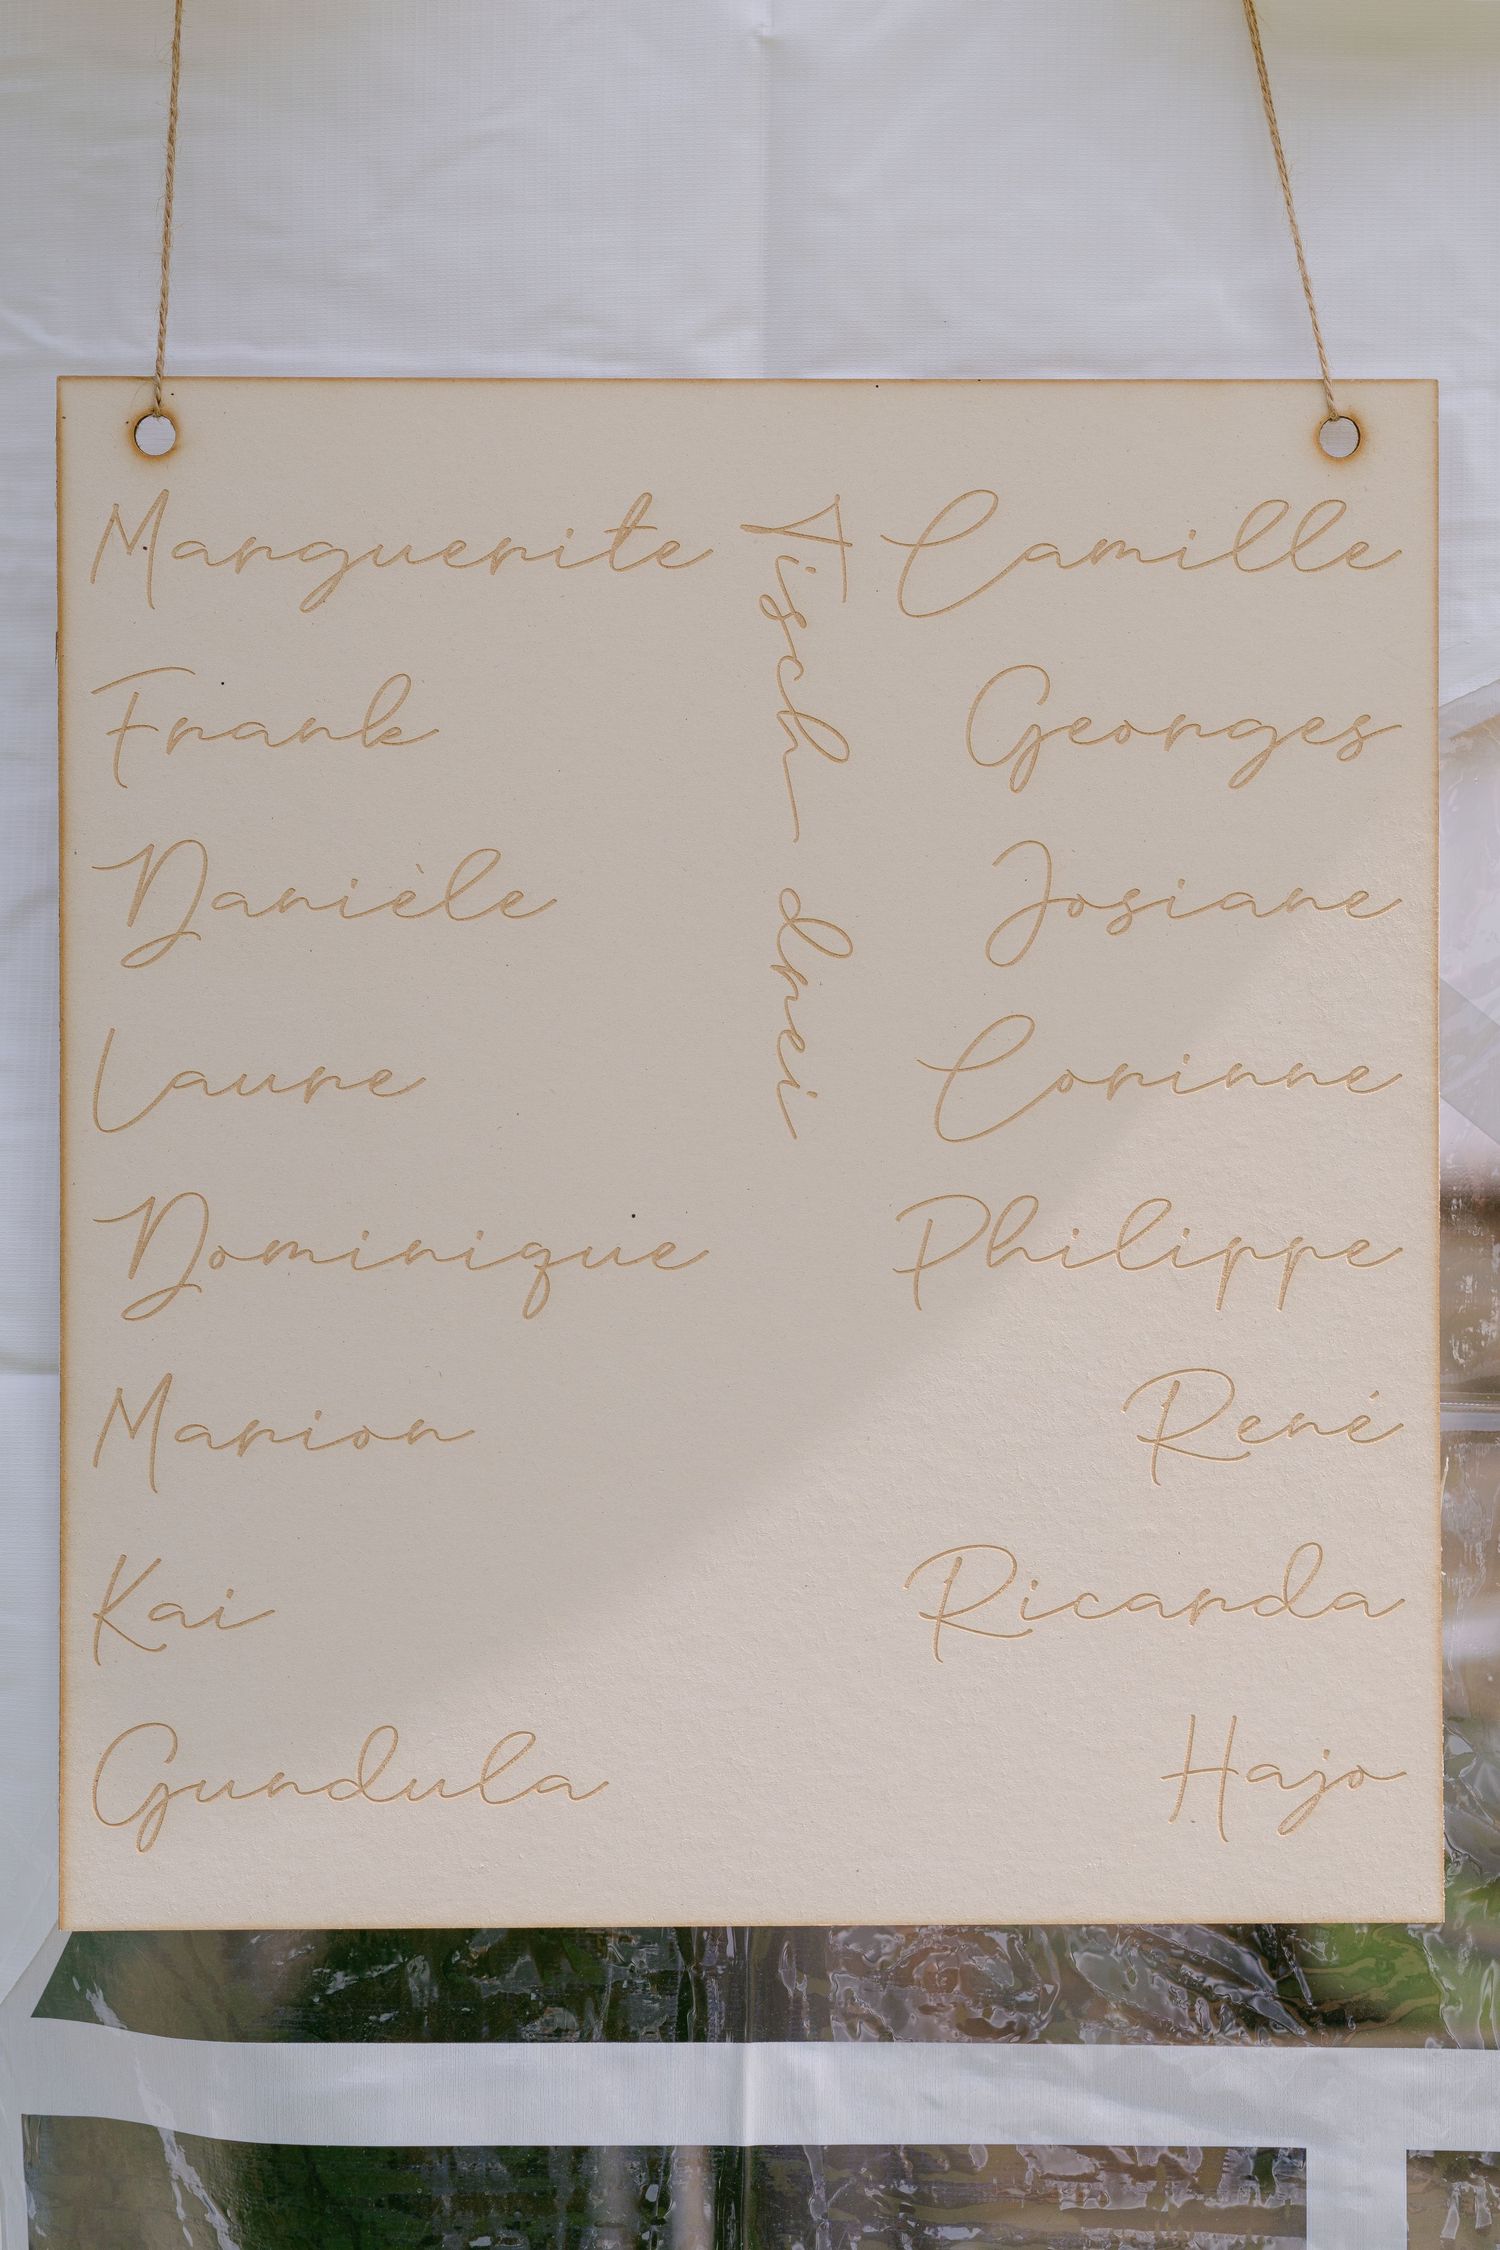 Marguerite
Frank
Danièle
Laure
Dominique
Marion
Kai
Gundula
Tisch drei
Camille
Georges
Josiane
Corinne
Philippe
René
Ricarda
Hajo